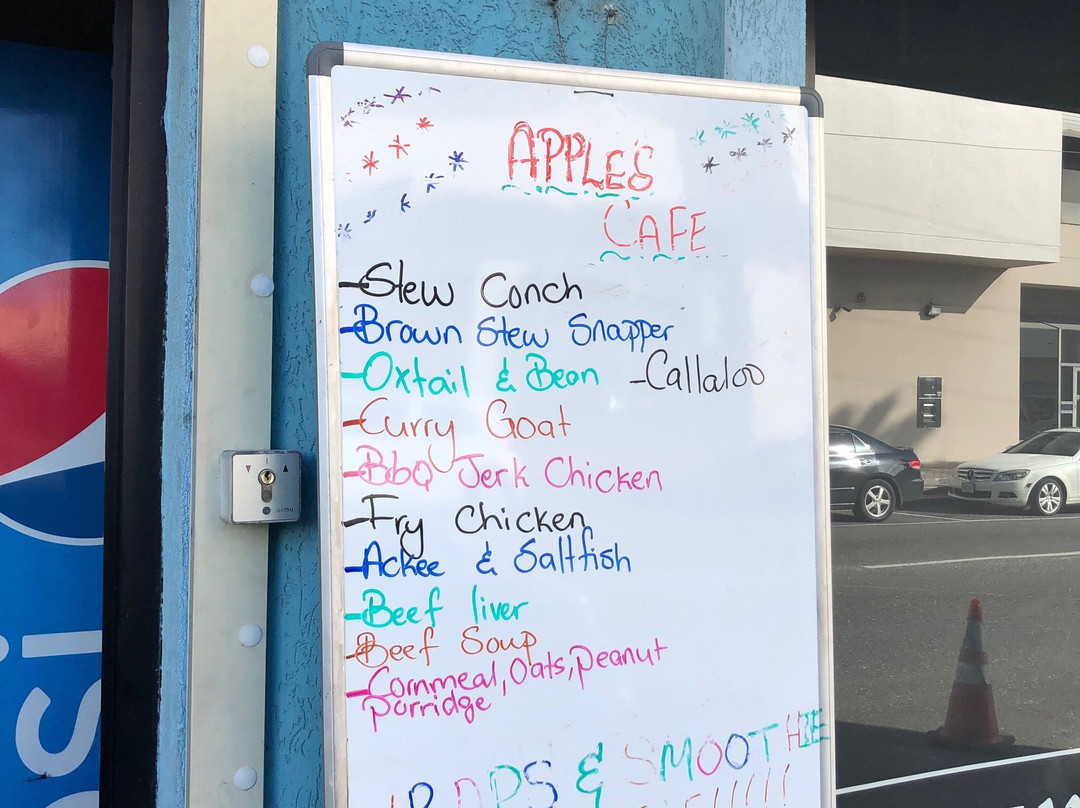 APPLES
CAFE
-Stew Conch
-Brown Stew Snapper
-Oxtail & Bean -Callaloo
-Curry Goat
-BBQ Jerk Chicken
-Fry Chicken
-Ackee & Saltfish
-Beef liver
-Beef Soup
-Cornmeal, Oats, Peanut
porridge
& SMOOTHIE